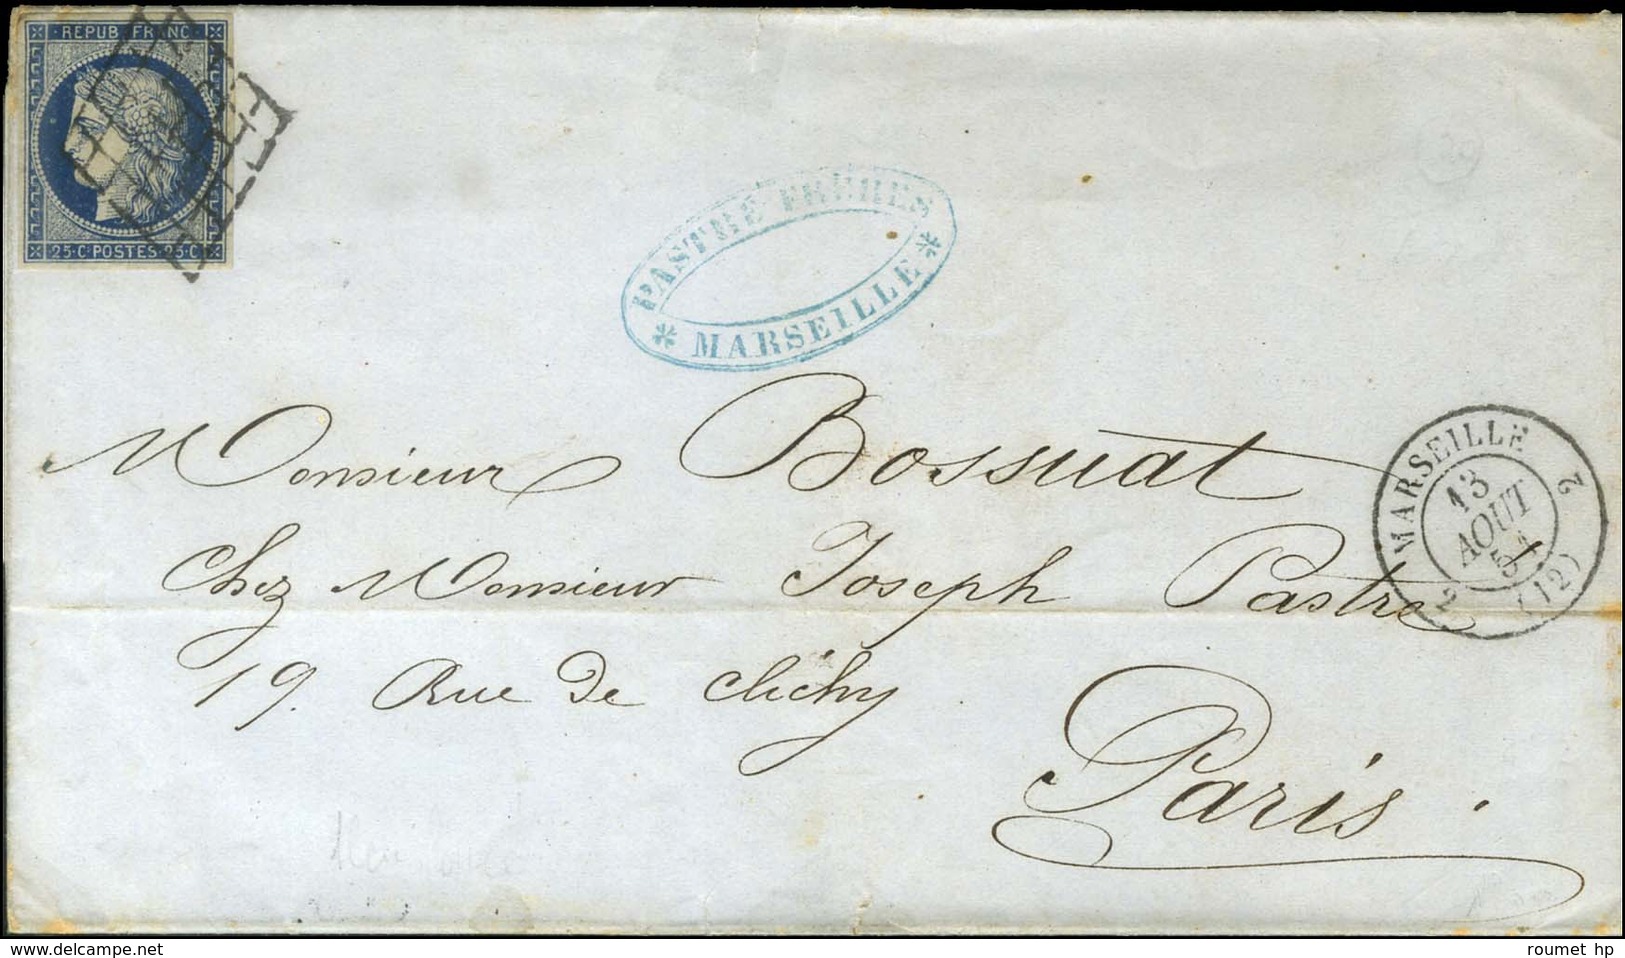 REPUB FRANC
25·C POSTES 25·C
PASTRÉ FRERES
MARSEILLE
Monsieur Bossuat
Chez Monsieur Joseph Pastre
19. Rue de Clichy
Paris
MARSEILLE 2
13
AOUT
51
2
(12)
www.delcampe.net
roumet hp